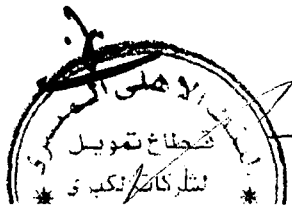 البنك الاهلى المصرى
قطاع تمويل
الشركات الكبرى